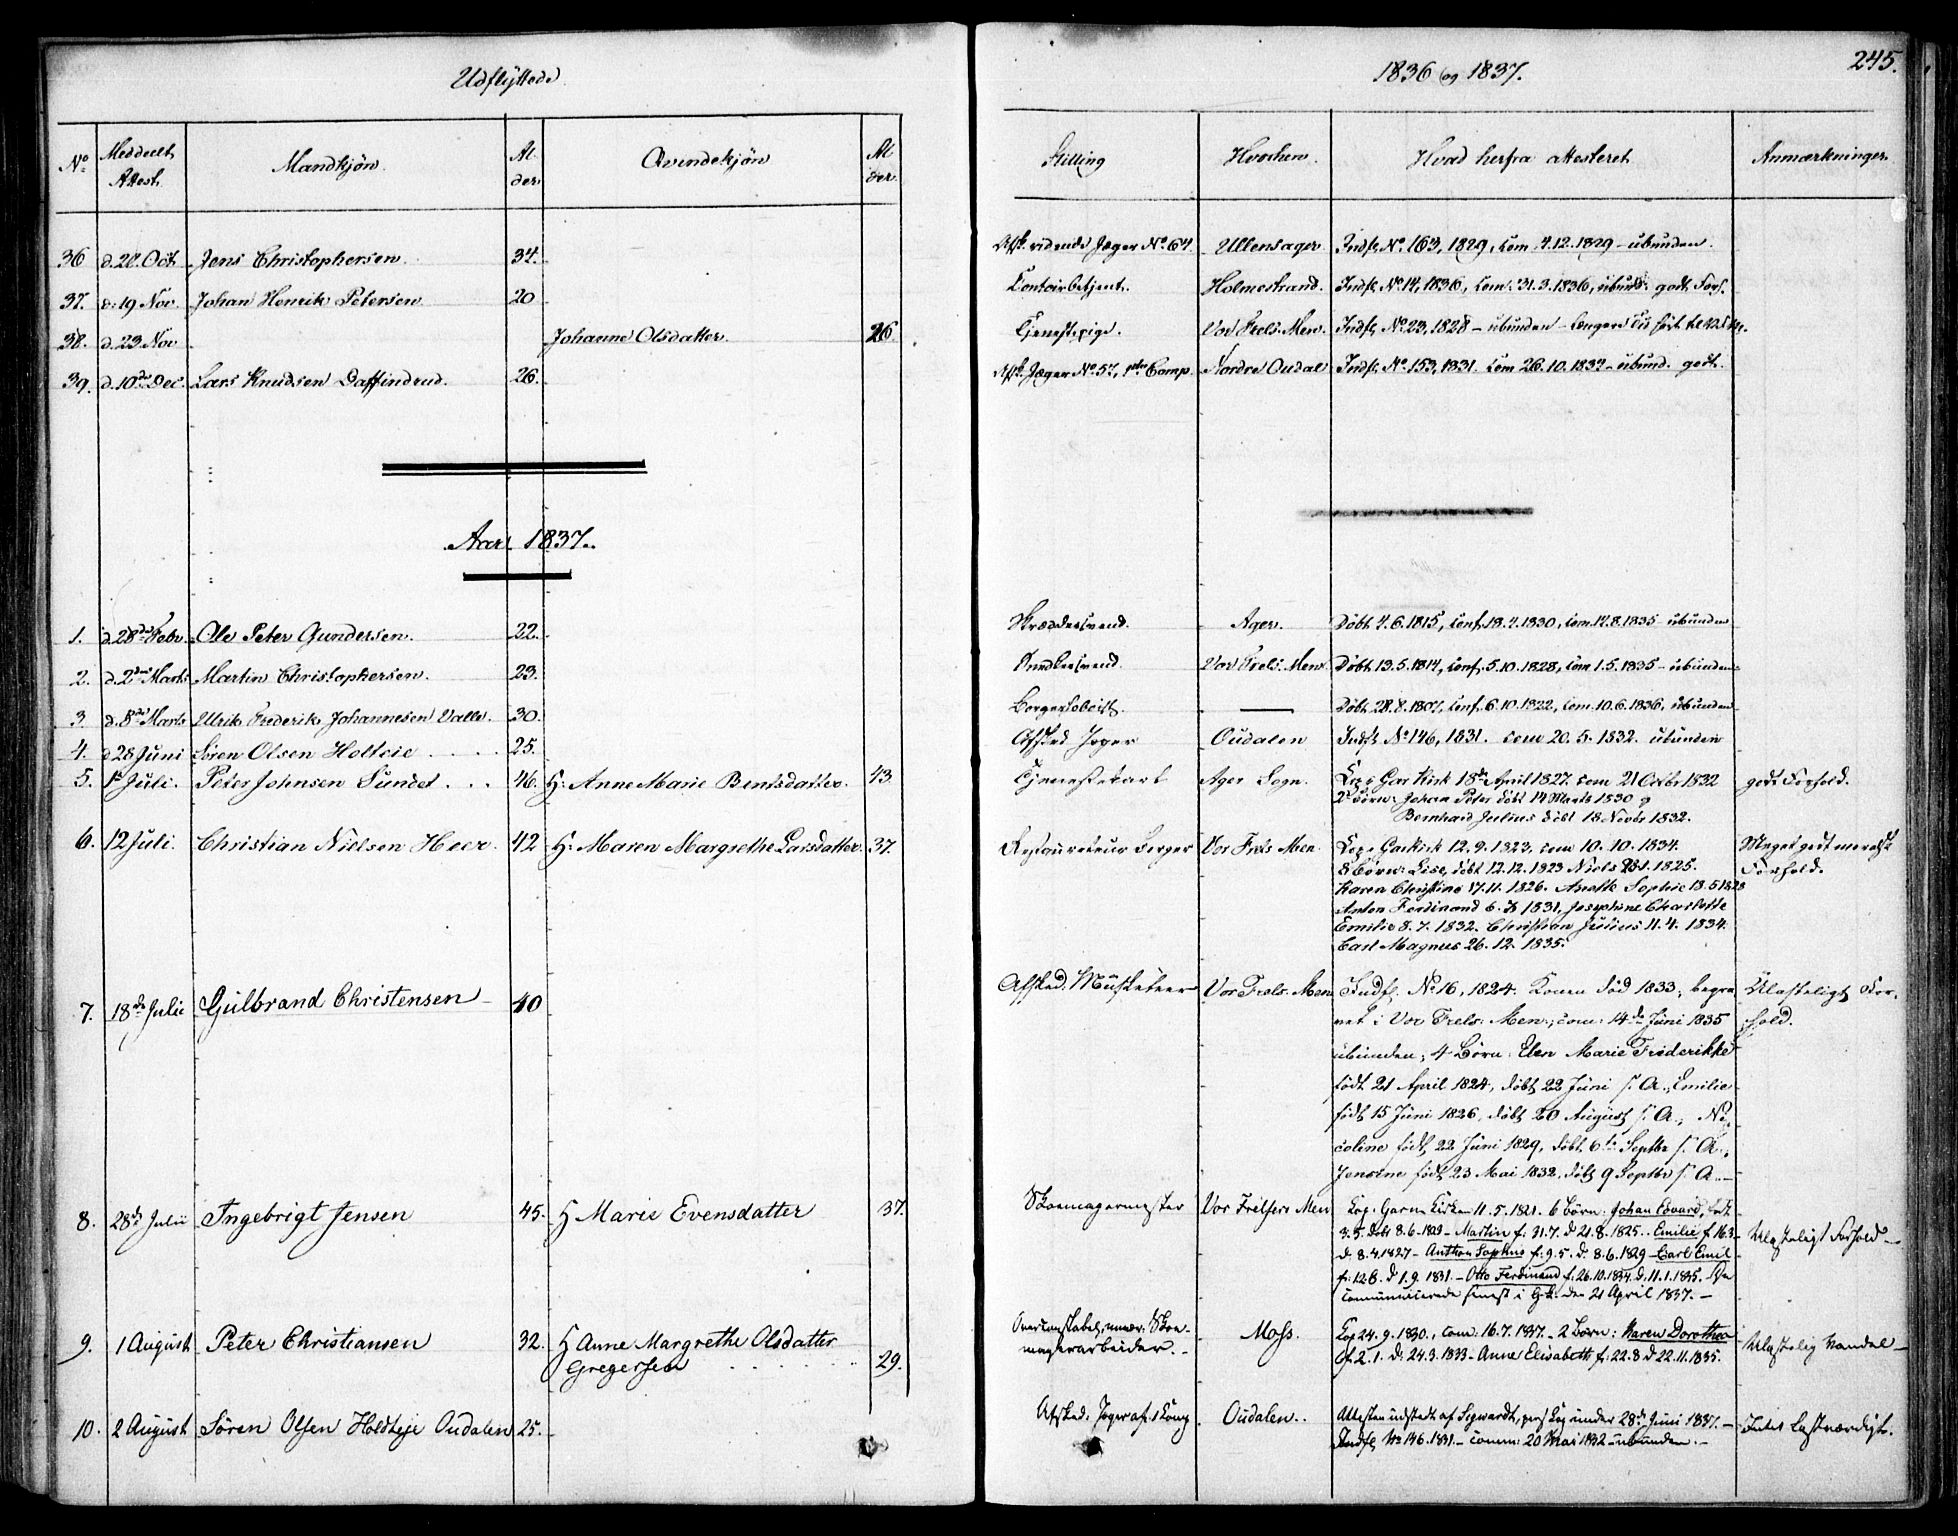 Udflyttede
1836 og 1837.
245.
No
Meddeelt Attest.
Mandkjøn.
Alder
Qvindekjøn
Alder.
Stilling
Hvorhen.
Hvad herfra attesteret
Anmærkninger.
36 d. 28. Oct. Jens Christophersen. 34. Afsk. ridende Jæger No. 64. Ullensager Indfl. No. 163, 1829, com. 4.12.1829 - ubunden.
37. d. 19 Nov. Johan Henrik Petersen 20 Contoirbetjent. Holmestrand. Indfl. No. 14, 1836, com. 31.3.1836, ubund. godt Forh.
38. d. 23 Nov Johanne Olsdatter. 26. Tjenestepige. Vor Frels. Men. Indfl. No. 23, 1828 - ubunden -
39. d. 10de Dec. Lars Knudsen Daffindrud. 26. Afsk. Jæger No. 57, 1ste Comp. Nordre Oudal Indfl. No. 153, 1831. com 26.10.1832 - ubund. godt.
Aar 1837.
1. d. 28de Febr. Ole Peter Gundersen. 22. Skrædersvend. Ager. Døbt 4.6.1815, conf. 18.4.1830, com. 14.8.1835 ubunden
2. d. 2den Marts Martin Christophersen. 23. Snedkersvend. Vor Frels. Men. Døbt 13.5.1814, conf. 5.10.1828, com 1.5.1835 - ubunden
3 d. 8de Marts Ulrik Frederik Johannesen Valle. 30. Borgerhoboist. — Døbt 28.8.1807, conf. 6.10.1822, com. 10.6.1836, ubunden
4. d 28 Juni Søren Olsen Holteie . . . . 25. Afsked Jæger Oudalen Indfl. No 146, 1831. com 20.5.1832. ubunden
5. 1st Juli. Peter Johnsen Sundet . . . 46. H: Anne Marie Bentsdatter. 43. Tjenestekarl Ager Sogn. Cop. i Gar Kirk 18de April 1827. com 21 Octbr 1832 godt Forhold.
2de Børn: Johan Peter døbt 14 Marts 1830 og
Bernhard Julius døbt 18 Novbr 1832.
6. 12 Juli. Christian Nielsen Heer. 42 H: Maren Margrethe Larsdatter. 37. Restaurateur Borger Vor Frels Men. Cop. i Gar Kirk 12.9.1823, com 10.10.1834. Meget godt moralsk
8 Børn: Lise, døbt 12.12.1823 Niels 1825. Forhold.
Karen Christine 17.11.1826. Anette Sophie 18.5.1828
Anton Ferdinand 6.3 1831, Josephine Charlotte
Emilie 8.7.1832. Christian Julius 11.4.1834.
Carl Magnus 26.12.1835.
7. 18de Julii Gulbrand Christensen 40 Afsked. Musketeer Vor Frels. Men Indfl. No 16, 1824. Konen død 1833, begra Ulasteligt For-
vet i Vor Frels. Men., com: 14de Juni 1835 hold.
ubunden; 4 Børn: Elen Marie Frederikke
født 21 April 1824, døbt 22 Juni s. A., Emilie
født 15 Juni 1826, døbt 20 August s. A., Ni-
coline født 22 Juni 1829, døbt 6te Septbr s. A.,
Jensine født 23 Mai 1832, døbt 9 Septbr s. A. -
8. 28de Julii Ingebrigt Jensen 45. H Marie Evensdatter 37. Skomagermester Vor Frelsers Men Cop. i Garn. Kirken 11.5.1821. 6 Børn: Johan Edvard, født
3.5. døbt 8.6.1823 - Martin f: 31.7. d 21.8.1825. - Emilie f. 16.3. Ulasteligt Forhold -
d. 8.4.1827 - Anthon Sophus f: 9.5. d. 8.6.1829 - Carl Emil
f: 12.8. d 1.9.1831. - Otto Ferdinand f: 26.10.1834. d. 11.1.1835.
Communicerede senest i G.k. den 21 April 1837. -
9. 1 August Peter Christiansen 32. H Anne Margrethe Olsdatter Overconstabel, nuvær. Sko- Moss. Cop 24.9.1830., com: 16.7.1837. - 2 Børn: Karen Dorothea Ulastelig Vandel -
Gregersen . . . . . 29. magerarbeider. - f. 2.1. d: 24.3.1833 - Anne Elisabeth f: 22.8 d 22.11.1835.
10. 2 August Søren Olsen Holdteje Oudalen 25. Afsked: Jæger af 1 Comp Oudalen.. Attesten udstedt af Sigwardt, pers Cap under 28de Juni 1837. - Intet Lastværdigt.
Indfl No 146.1831. - comm: 20 Mai 1832 - ubunden. -